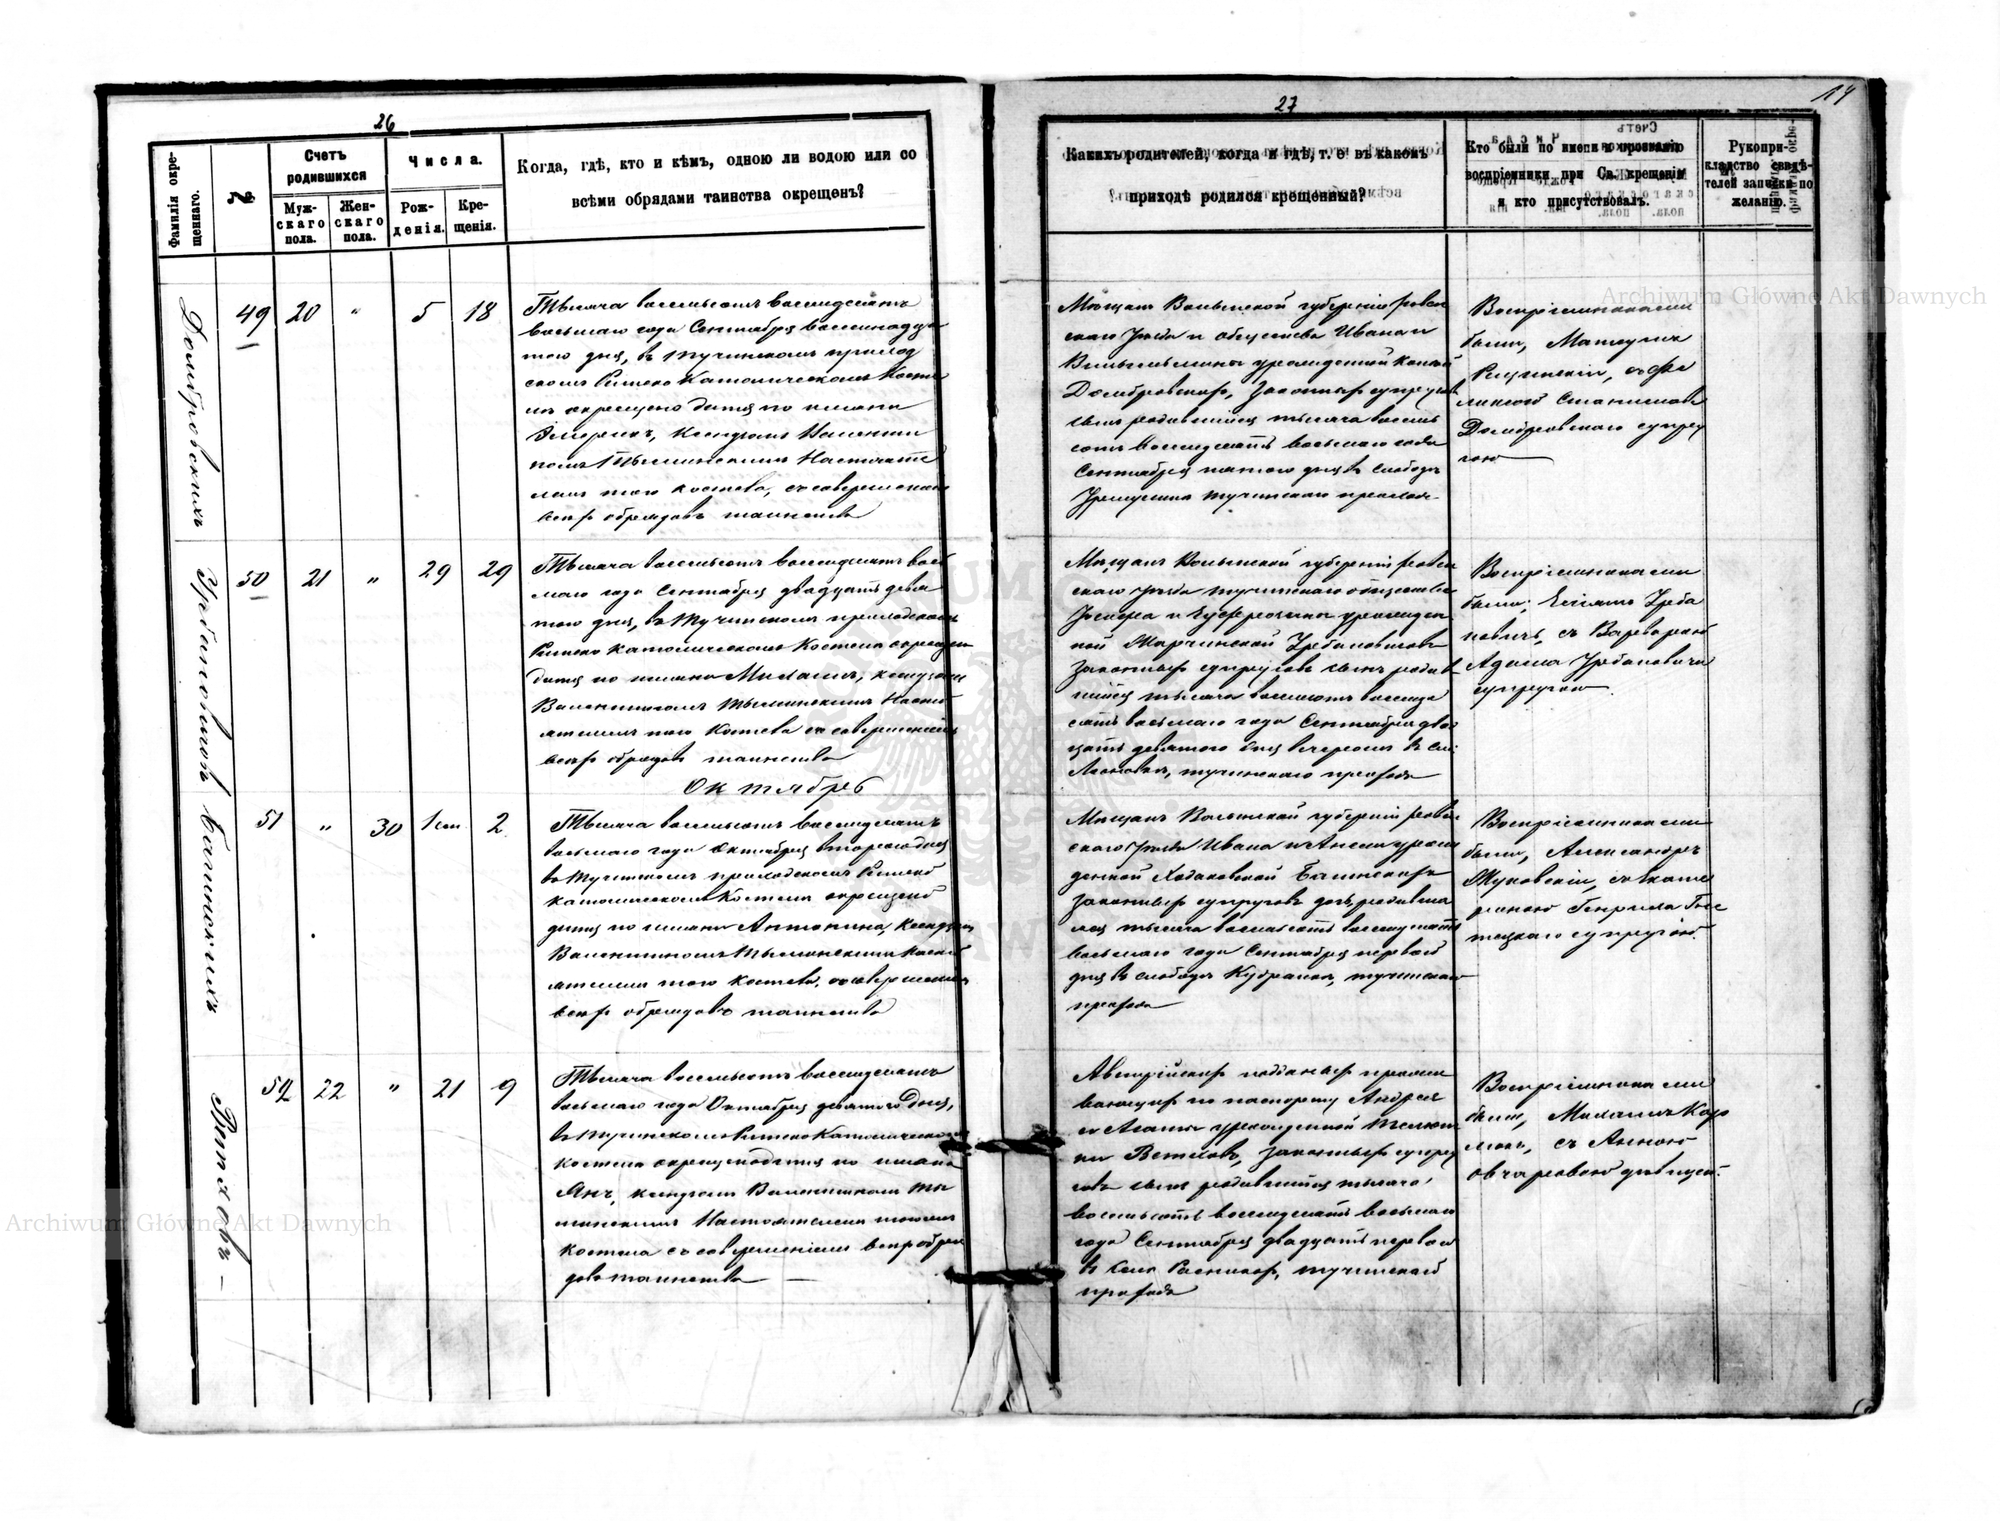 26
Фамилія окре-
щеннаго.
№
Счетъ
родившихся
Муж-
скаго
пола.
Жен-
скаго
пола.
Числа.
Рож-
денія.
Кре-
щенія.
Когда, гдѣ, кто и кѣмъ, одною ли водою или со
всѣми обрядами таинства окрещенъ?
Домбровскихъ
49 20 " 5 18
Тысяча восемьсотъ восемьдесятъ
восьмаго года Сентября восемнадца
таго дня, въ Тучинскомъ приход
скомъ Римско Католическомъ Косте
лѣ окрещено дитя по имени
ксендзомъ Валенти
номъ Тыминскимъ Настояте
лемъ того костела, съ совершеніемъ
всѣхъ обрядовъ таинства
Урбановичовъ
50 21 " 29 29
Тысяча восемьсотъ восемьдесятъ вось
маго года Сентября двадцать девя
таго дня, въ Тучинскомъ приходскомъ
Римско Католическомъ Костелѣ окрещено
дитя по имени Михаилъ, ксендзомъ
Валентиномъ Тыминскимъ Насто
ятелемъ того Костела съ совершеніемъ
всѣхъ обрядовъ таинства
Октябрь
Балинскихъ
51 " 30 1 сен. 2
Тысяча восемьсотъ восемьдесятъ
восьмаго года Октября втораго дня
въ Тучинскомъ приходскомъ Римско
католическомъ Костелѣ окрещено
дитя по имени Антонина, Ксендзомъ
Валентиномъ Тыминскимъ Насто
ятелемъ того Костела, съ совершеніемъ
всѣхъ обрядовъ таинства
52 22 " 21 9
Тысяча восемьсотъ восемьдесятъ
восьмаго года Октября девятаго дня,
въ Тучинскомъ Римско Католическомъ
костелѣ окрещено дитя по имени
Янъ, ксендзомъ Валентиномъ Ты
минскимъ Настоятелемъ того
Костела съ совершеніемъ всѣхъ обря
довъ таинства —
27
14
Какихъ родителей, когда и гдѣ, т. е. въ какомъ
приходѣ родился крещенный?
Кто были по имени и прозванію
воспріемники при Св. крещеніи
и кто присутствовалъ.
Рукопри-
кладство свидѣ-
телей записки по
желанію.
Мѣщанъ Волынской губерніи Ровен
скаго уѣзда и общества Ивана и
Вильгельмины урожденной
Домбровскихъ, законныхъ супруговъ
сынъ родившійся тысяча восемь
сотъ восемьдесятъ восьмаго года
Сентября пятаго дня въ слободѣ
Тучинскаго прихода
Воспріемниками
были, Матеушъ
съ Фе
ликсою Станислава
Домбровскаго супру
гою
Мѣщанъ Волынской губерніи Ровен
скаго уѣзда Тучинскаго общества
Іосифа и Еуфрозины урожден
ной Марчинской Урбановичовъ
законныхъ супруговъ сынъ родив
шійся тысяча восемьсотъ восемьде
сятъ восьмаго года Сентября двад
цать девятаго дня вечеромъ въ сел.
Тучинскаго прихода
Воспріемниками
были; Урба
новичъ, съ Варварою
Адама Урбановича
супругою.
Мѣщанъ Волынской губерніи Ровен
скаго уѣзда Ивана и урож
денной Ходаковской Балинскихъ
законныхъ супруговъ дочь родивша
яся тысяча восемьсотъ восемьдесятъ
восьмаго года Сентября перваго
дня въ слободѣ Тучинскаго
прихода
Воспріемниками
были, Александръ
Жуковскій, съ Кате
риною Генриха
супругою.
Австрійскихъ подданныхъ прожи
вающихъ по паспорту Андрея
и Агаты урожденной
законныхъ супру
говъ сынъ родившійся тысяча
восемьсотъ восемьдесятъ восьмаго
года Сентября двадцать перваго
въ Тучинскаго
прихода
Воспріемниками
были, Михаилъ
съ Анною
дѣвицей.
Archiwum Główne Akt Dawnych
Archiwum Główne Akt Dawnych